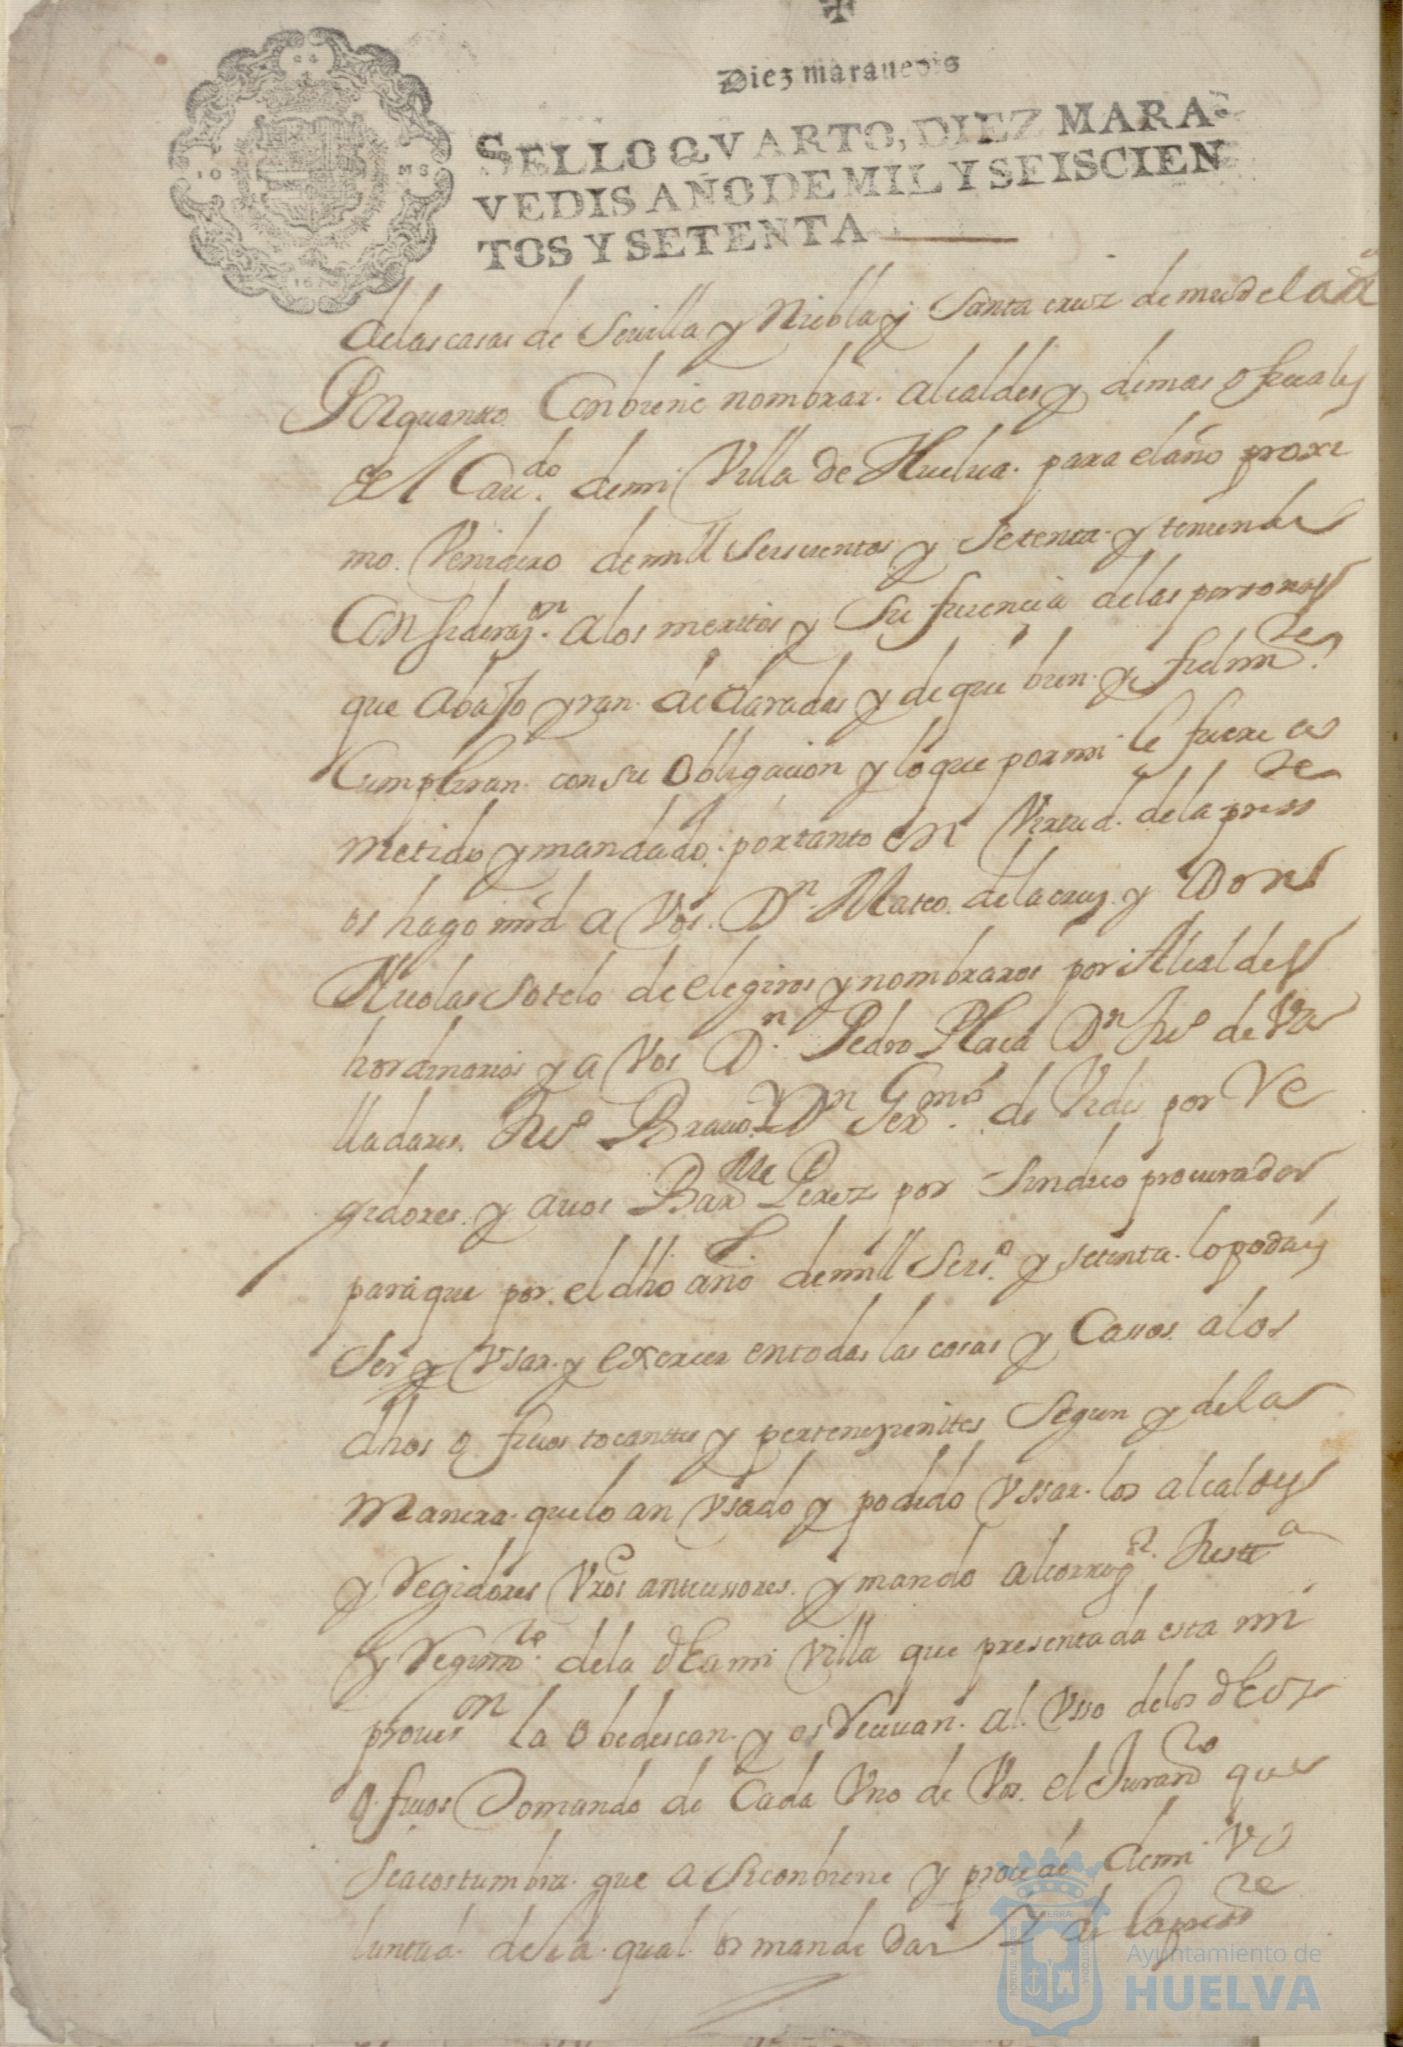 Diez maravedis
SELLO QVARTO, DIEZ MARA-
VEDIS AÑO DE MIL Y SEISCIEN
TOS Y SETENTA
de las casas de Sevilla y Niebla y Santa cruz de mudela &a
Porquanto Conbiene nombrar alcaldes y demas oficiales
del Cavdo. de mi Villa de Huelva para el año proxi
mo Venidero de mill seiscientos y setenta y teniendo
Consideraçon. a los meritos y suficiencia de las personas
que abajo yran declaradas y de que bien y fielmte.
Cumpliran con su obligacion y lo que por mi le fuere co
metido y mandado. por tanto en Virtud de la presste
os hago mrd a Vos. Dn. Mateo de la cruz y Don
Nicolas sotelo de elegiros y nombraros por Alcaldes
hordinarios y a Vos Dn. Pedro Plaça Dn Juo de Va
lladares. Juo Bravo. Y Dn Germo. de Vides por Re
gidores y a vos Barme Perez por Sindico procurador
para que por el dho año de mill seiso. y setenta lo podais
Ser y Vsar y exercer en todas las cosas y Casos a los
dhos oficios tocantes y pertenezientes segun y de la
Manera que lo an Vsado y podido Vssar los alcaldes
y Regidores Vros antecessores. y mando al corregor. Justa
y Regimto. de la dha mi Villa que presentada esta mi
provison la obedescan y os Recivan al Vsso de los dhos
oficios Tomando de Cada Vno de Vos el Juramto que
se acostumbra que a si conbiene y procede de mi Vo
luntad de la qual os mande dar y di la presste
Ayuntamiento de
HUELVA